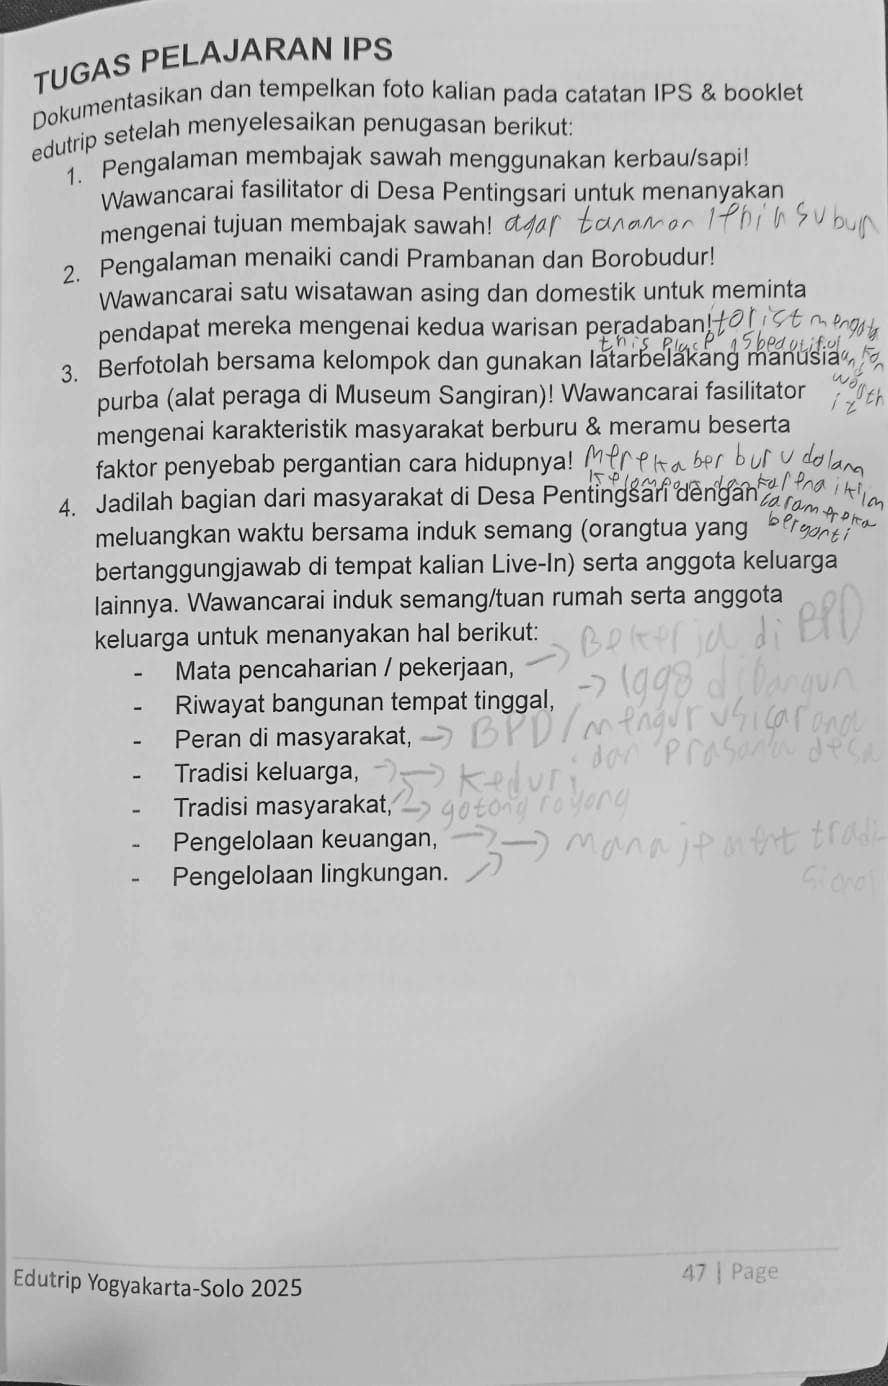 TUGAS PELAJARAN IPS
Dokumentasikan dan tempelkan foto kalian pada catatan IPS & booklet
edutrip setelah menyelesaikan penugasan berikut:
1. Pengalaman membajak sawah menggunakan kerbau/sapi!
Wawancarai fasilitator di Desa Pentingsari untuk menanyakan
mengenai tujuan membajak sawah! agar tanaman lebih subur
2. Pengalaman menaiki candi Prambanan dan Borobudur!
Wawancarai satu wisatawan asing dan domestik untuk meminta
pendapat mereka mengenai kedua warisan peradaban! torist
this place is beautiful
3. Berfotolah bersama kelompok dan gunakan latarbelakang manusia
worth
it
purba (alat peraga di Museum Sangiran)! Wawancarai fasilitator
mengenai karakteristik masyarakat berburu & meramu beserta
faktor penyebab pergantian cara hidupnya! Mereka berburu dalam
kelompok dan karena iklim
4. Jadilah bagian dari masyarakat di Desa Pentingsari dengan
cara mereka
berganti
meluangkan waktu bersama induk semang (orangtua yang
bertanggungjawab di tempat kalian Live-In) serta anggota keluarga
lainnya. Wawancarai induk semang/tuan rumah serta anggota
keluarga untuk menanyakan hal berikut:
- Mata pencaharian / pekerjaan, → Bekerja di BPD
- Riwayat bangunan tempat tinggal, → 1998 dibangun
- Peran di masyarakat, → BPD/mengurusi sarana
dan prasarana desa
- Tradisi keluarga, → keduri
- Tradisi masyarakat, → gotong royong
- Pengelolaan keuangan, → manajement tradi
sional
- Pengelolaan lingkungan.
Edutrip Yogyakarta-Solo 2025
47 | Page